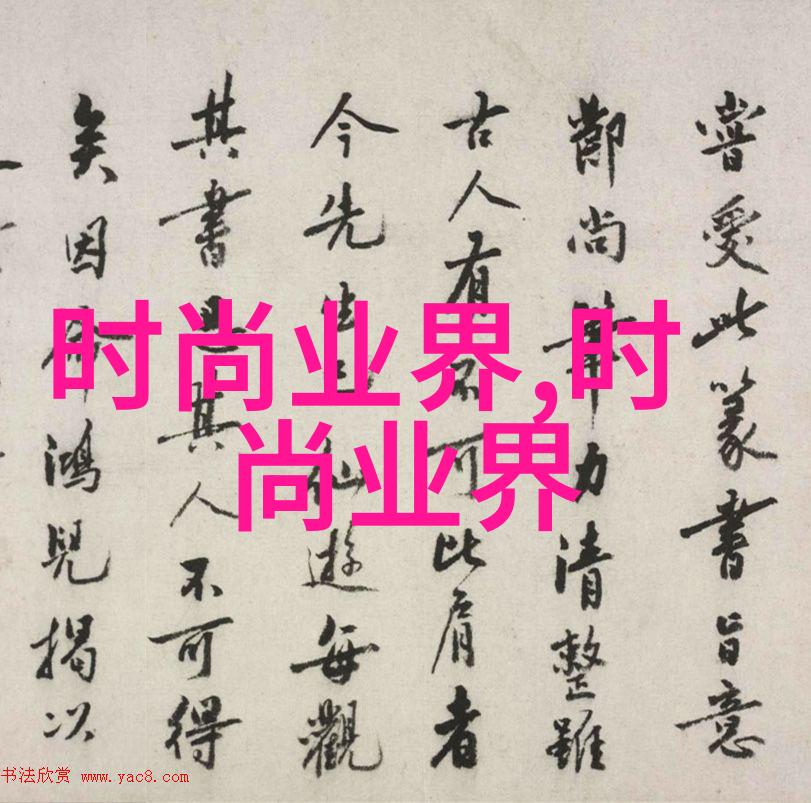 时尚业界,时
尚业界
嘗受此篆書旨意
節尚筆力清整雖
古人有不可比肩者
今先生已仙遊每觀
其書其人不可得
矣因命鴻兒揭以
书法欣赏 www.yac8.com